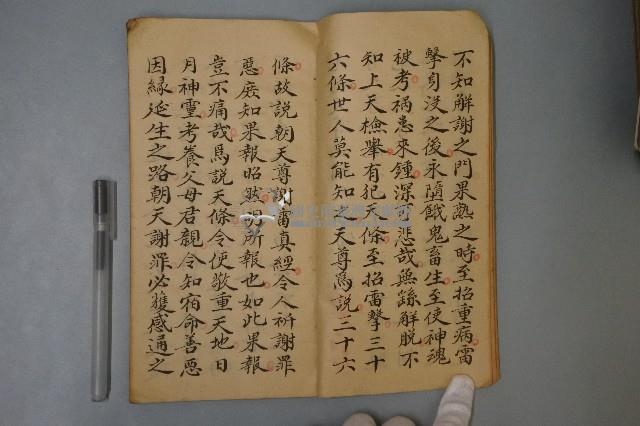 不知解謝之門果熟之時至招重病雷
擊身没之後永墮餓鬼畜生至使神魂
被考禍患來鍾深可悲哉無繇解脱不
知上天檢舉有犯天條至招雷擊三十
六條世人莫能知之天尊爲説三十六
條故説朝天尊謝雷真經令人祈謝罪
惡庻知果報昭然明所報也如此果報
豈不痛哉爲説天條令使敬重天地日
月神靈考養父母君親令知宿命善惡
因縁延生之路朝天謝罪必獲感通之